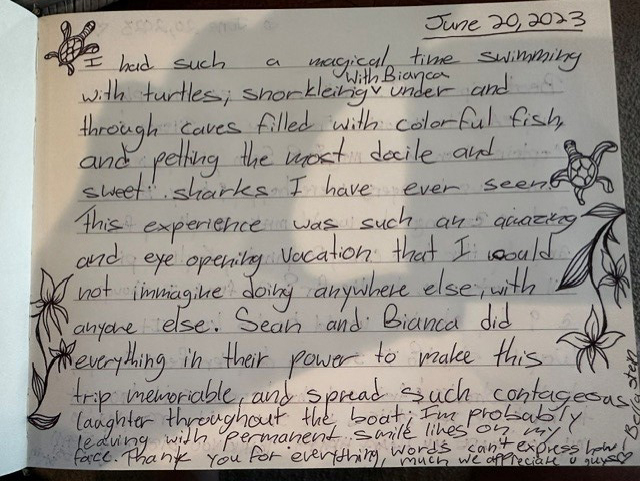 June 20, 2023
I had such a magical time swimming
with turtles, snorkleing with Bianca under and
through caves filled with colorful fish,
and petting the most docile and
sweet sharks I have ever seen.
This experience was such an amazing
and eye opening vacation that I would
not immagine doing anywhere else, with
anyone else. Sean and Bianca did
everything in their power to make this
trip memoriable, and spread such contageous
laughter throughout the boat; I'm probably
leaving with permanent smile lines on my
face. Thank you for everything, words can't express how
much we appreciate u guys♡